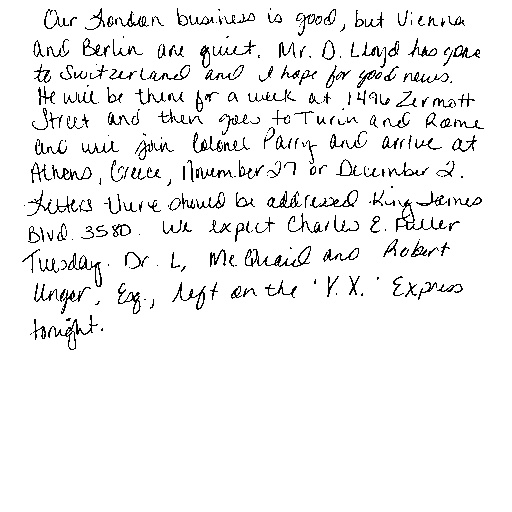 Our London business is good, but Vienna
and Berlin are quiet. Mr. D. Lloyd has gone
to Switzerland and I hope for good news.
He will be there for a week at 1496 Zermott
Street and then goes to Turin and Rome
and will join Colonel Parry and arrive at
Athens, Greece, November 27 or December 2.
Letters there should be addressed King James
Blvd. 3580. We expect Charles E. Fuller
Tuesday. Dr. L. McQuaid and Robert
Unger, Esq., left on the 'Y.X.' Express
tonight.